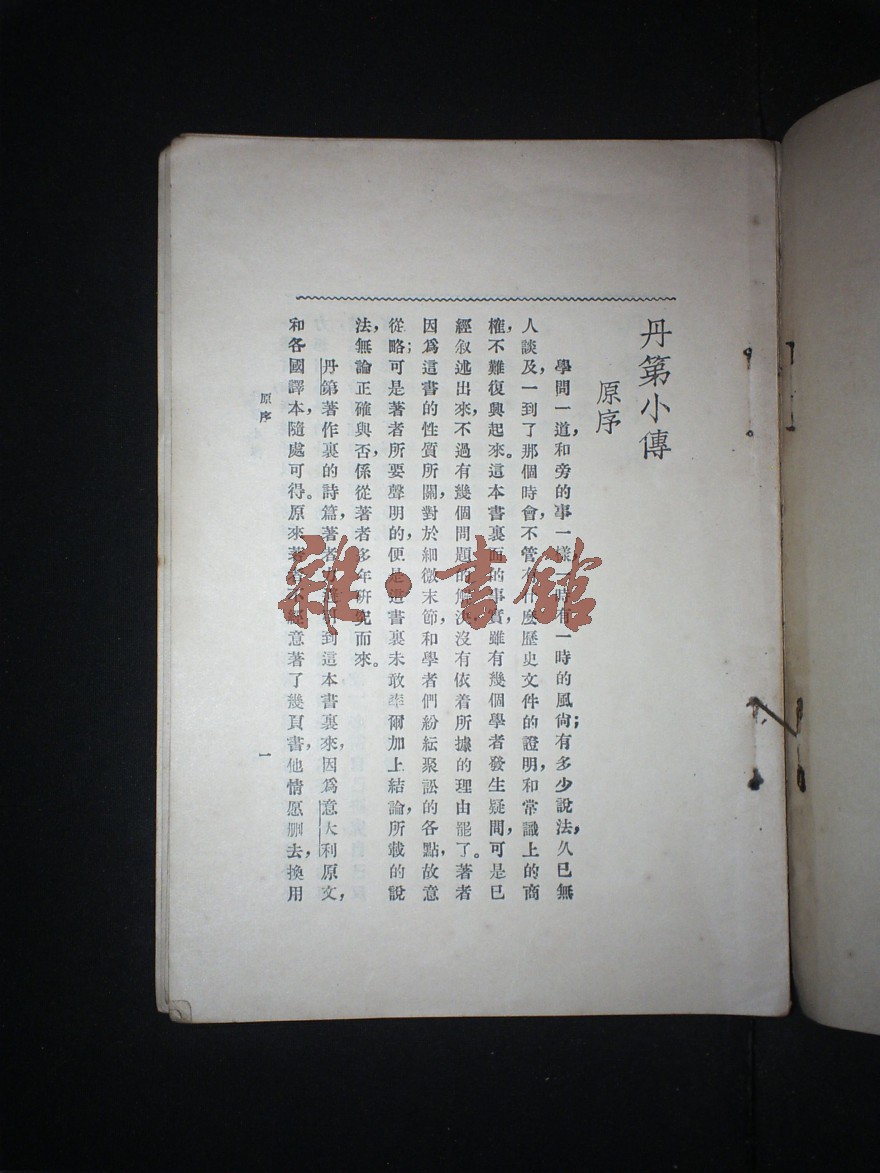 丹第小傳
原序
學問一道，和旁的事一樣，一時有一時的風尙；有多少說法，久已無
人談及，一到了那個時會，不管有什麼歷史文件的證明，和常識上的商
榷，不難復興起來。這本書裏面的事實，雖有幾個學者發生疑問，可是已
經叙述出來，不過有幾個問題的解決，沒有依着所據的理由罷了。著者
因爲這書的性質所關，對於細微末節，和學者們紛紜聚訟的各點，故意
從略；可是著者所要聲明的，便是這書裏未敢率爾加上結論，所載的說
法，無論正確與否，係從著者多年研究而來。
丹第著作裏的詩篇，著者力引到這本書裏來，因爲意大利原文，
和各國譯本，隨處可得。原來著者不經意著了幾頁書，他情愿删去，換用
原序
一
雜·書館